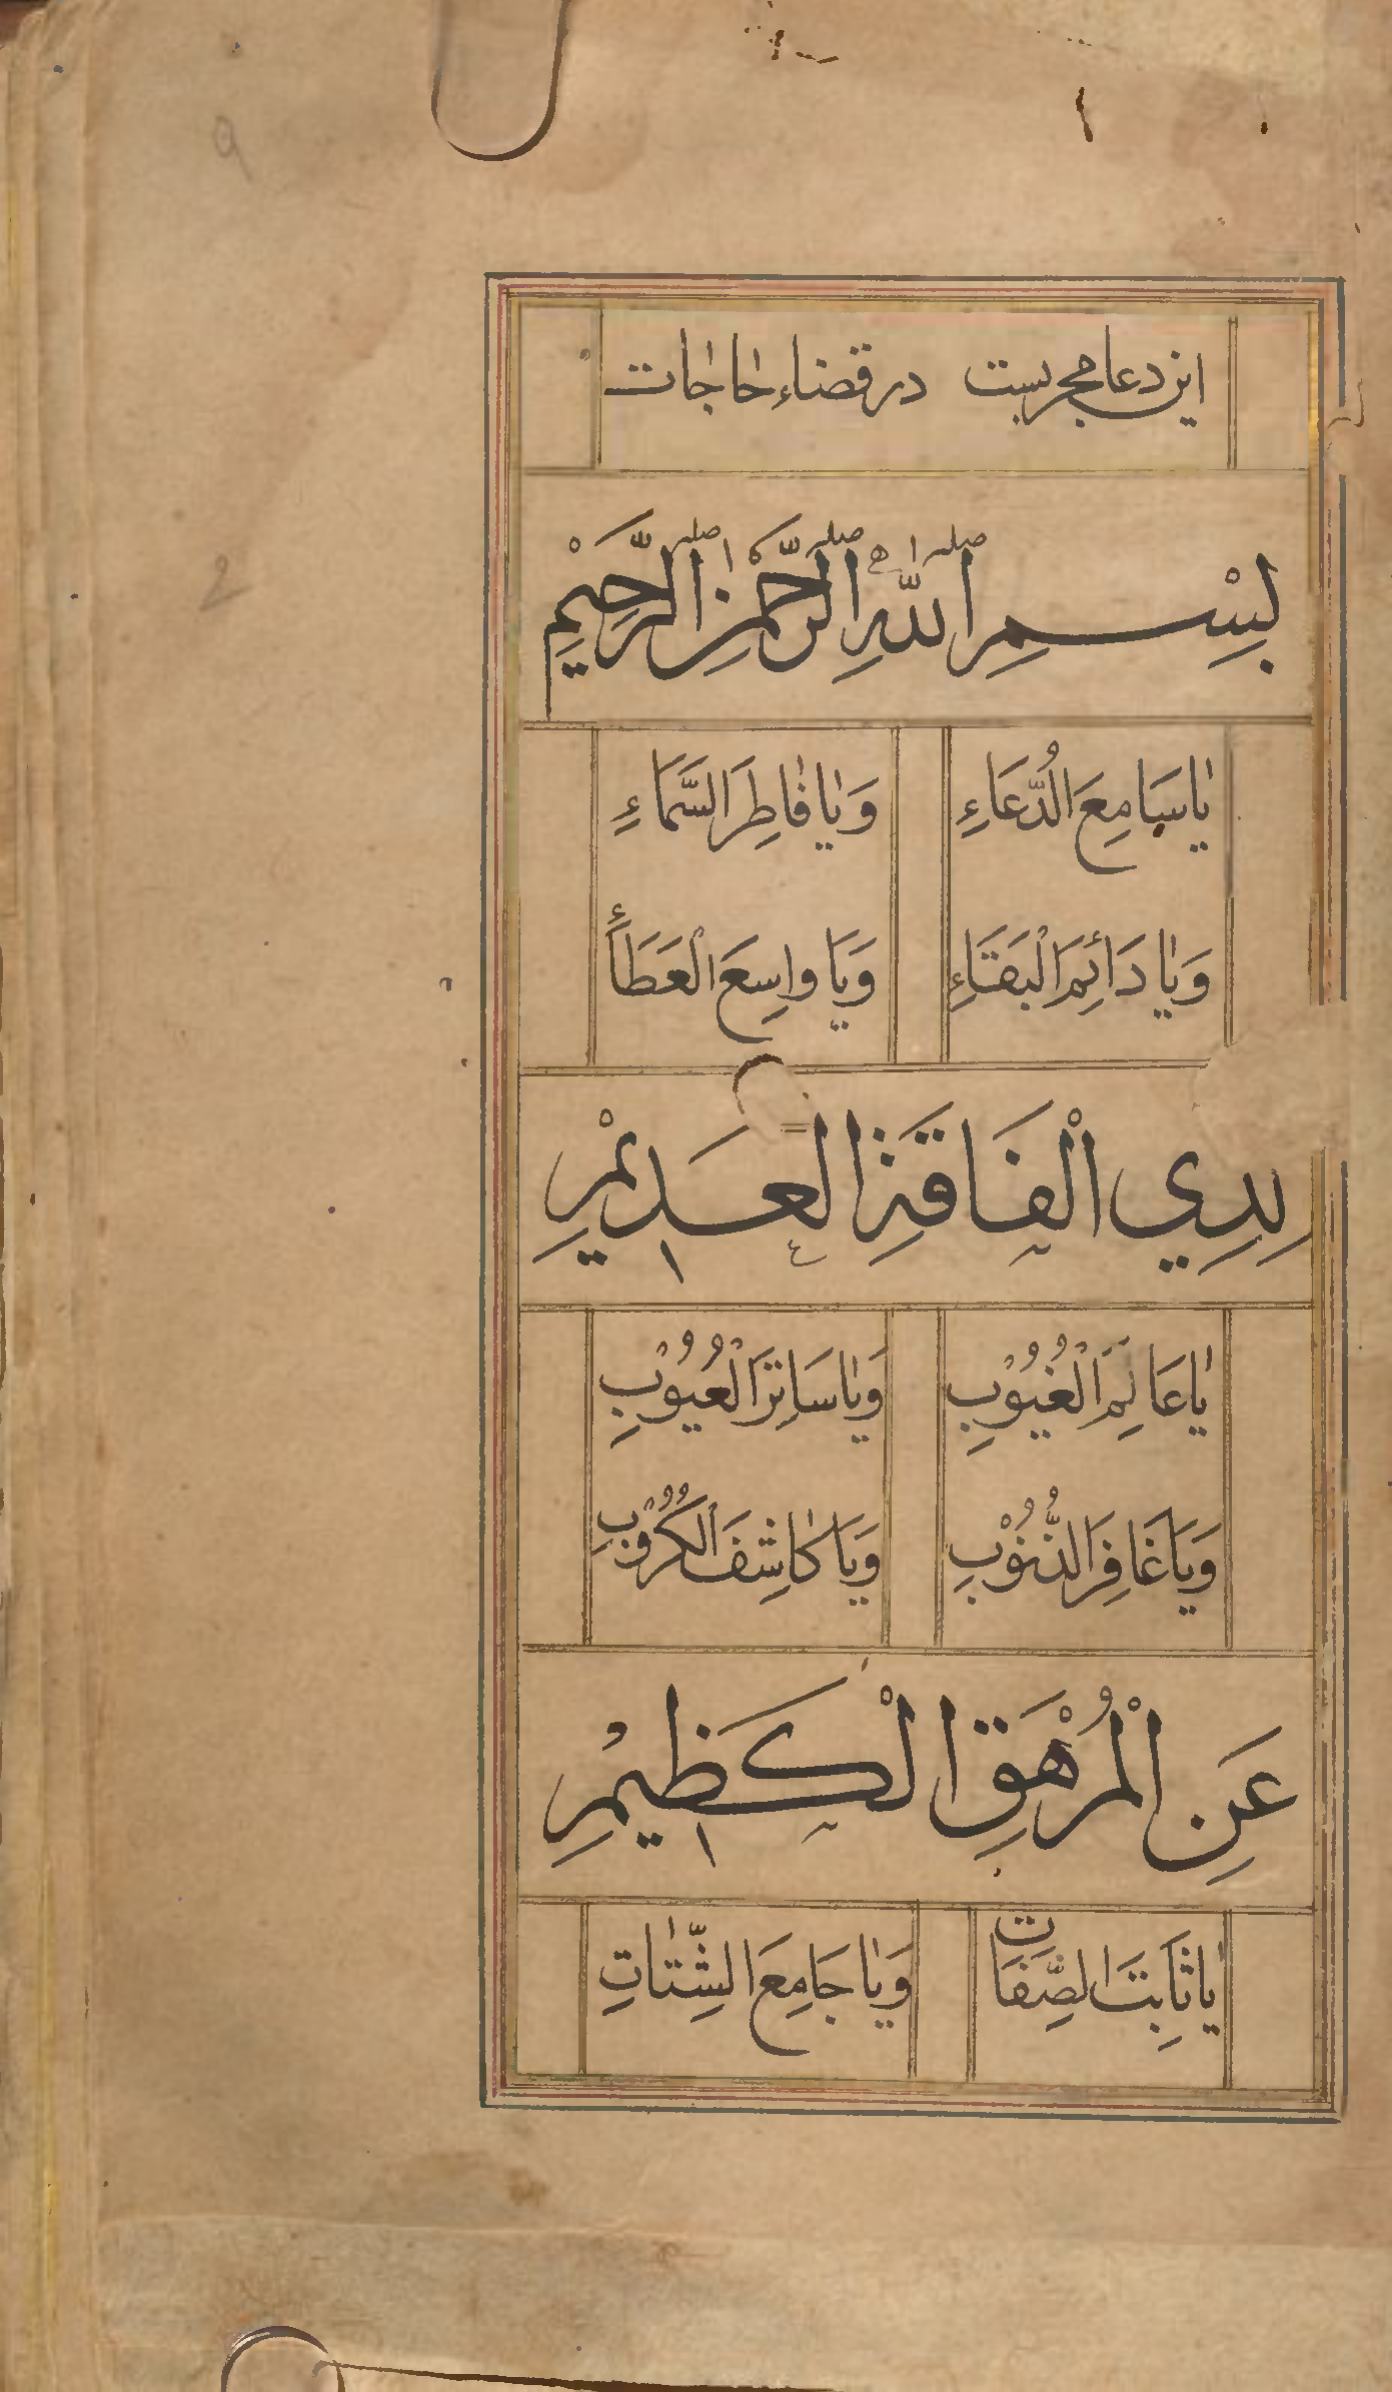 این دعا مجربست در قضاء حاجات
بِسْمِ اللّٰهِ الرَّحْمٰنِ الرَّحِيْمِ
يٰا سَامِعَ الدُّعَاءِ وَيٰا فٰاطِرَ السَّمَاءِ
وَيٰا دَائِمَ الْبَقَاءِ وَيَا وٰاسِعَ الْعَطَاءِ
لِذِي الْفَاقَةِ الْعَدِيْمِ
يٰا عَالِمَ الْغُيُوْبِ وَيٰا سَاتِرَ الْعُيُوْبِ
وَيَا غَافِرَ الذُّنُوْبِ وَيَا كٰاشِفَ الْكُرُوْبِ
عَنِ الْمُرْهَقِ الْكَظِيْمِ
يٰا ثَابِتَ الصِّفَات وَيٰا جَامِعَ الشِّتٰاتِ